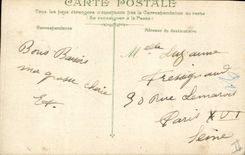 CARTE POSTALE
Tous les pays étrangers n'acceptent pas la Correspondance au recto
(Se renseigner à la Poste)
Correspondance
Adresse du destinataire
Bons Baisers
ma grosse chérie
Melle Suzanne
90 Rue Lemarois
Paris XVI
Seine